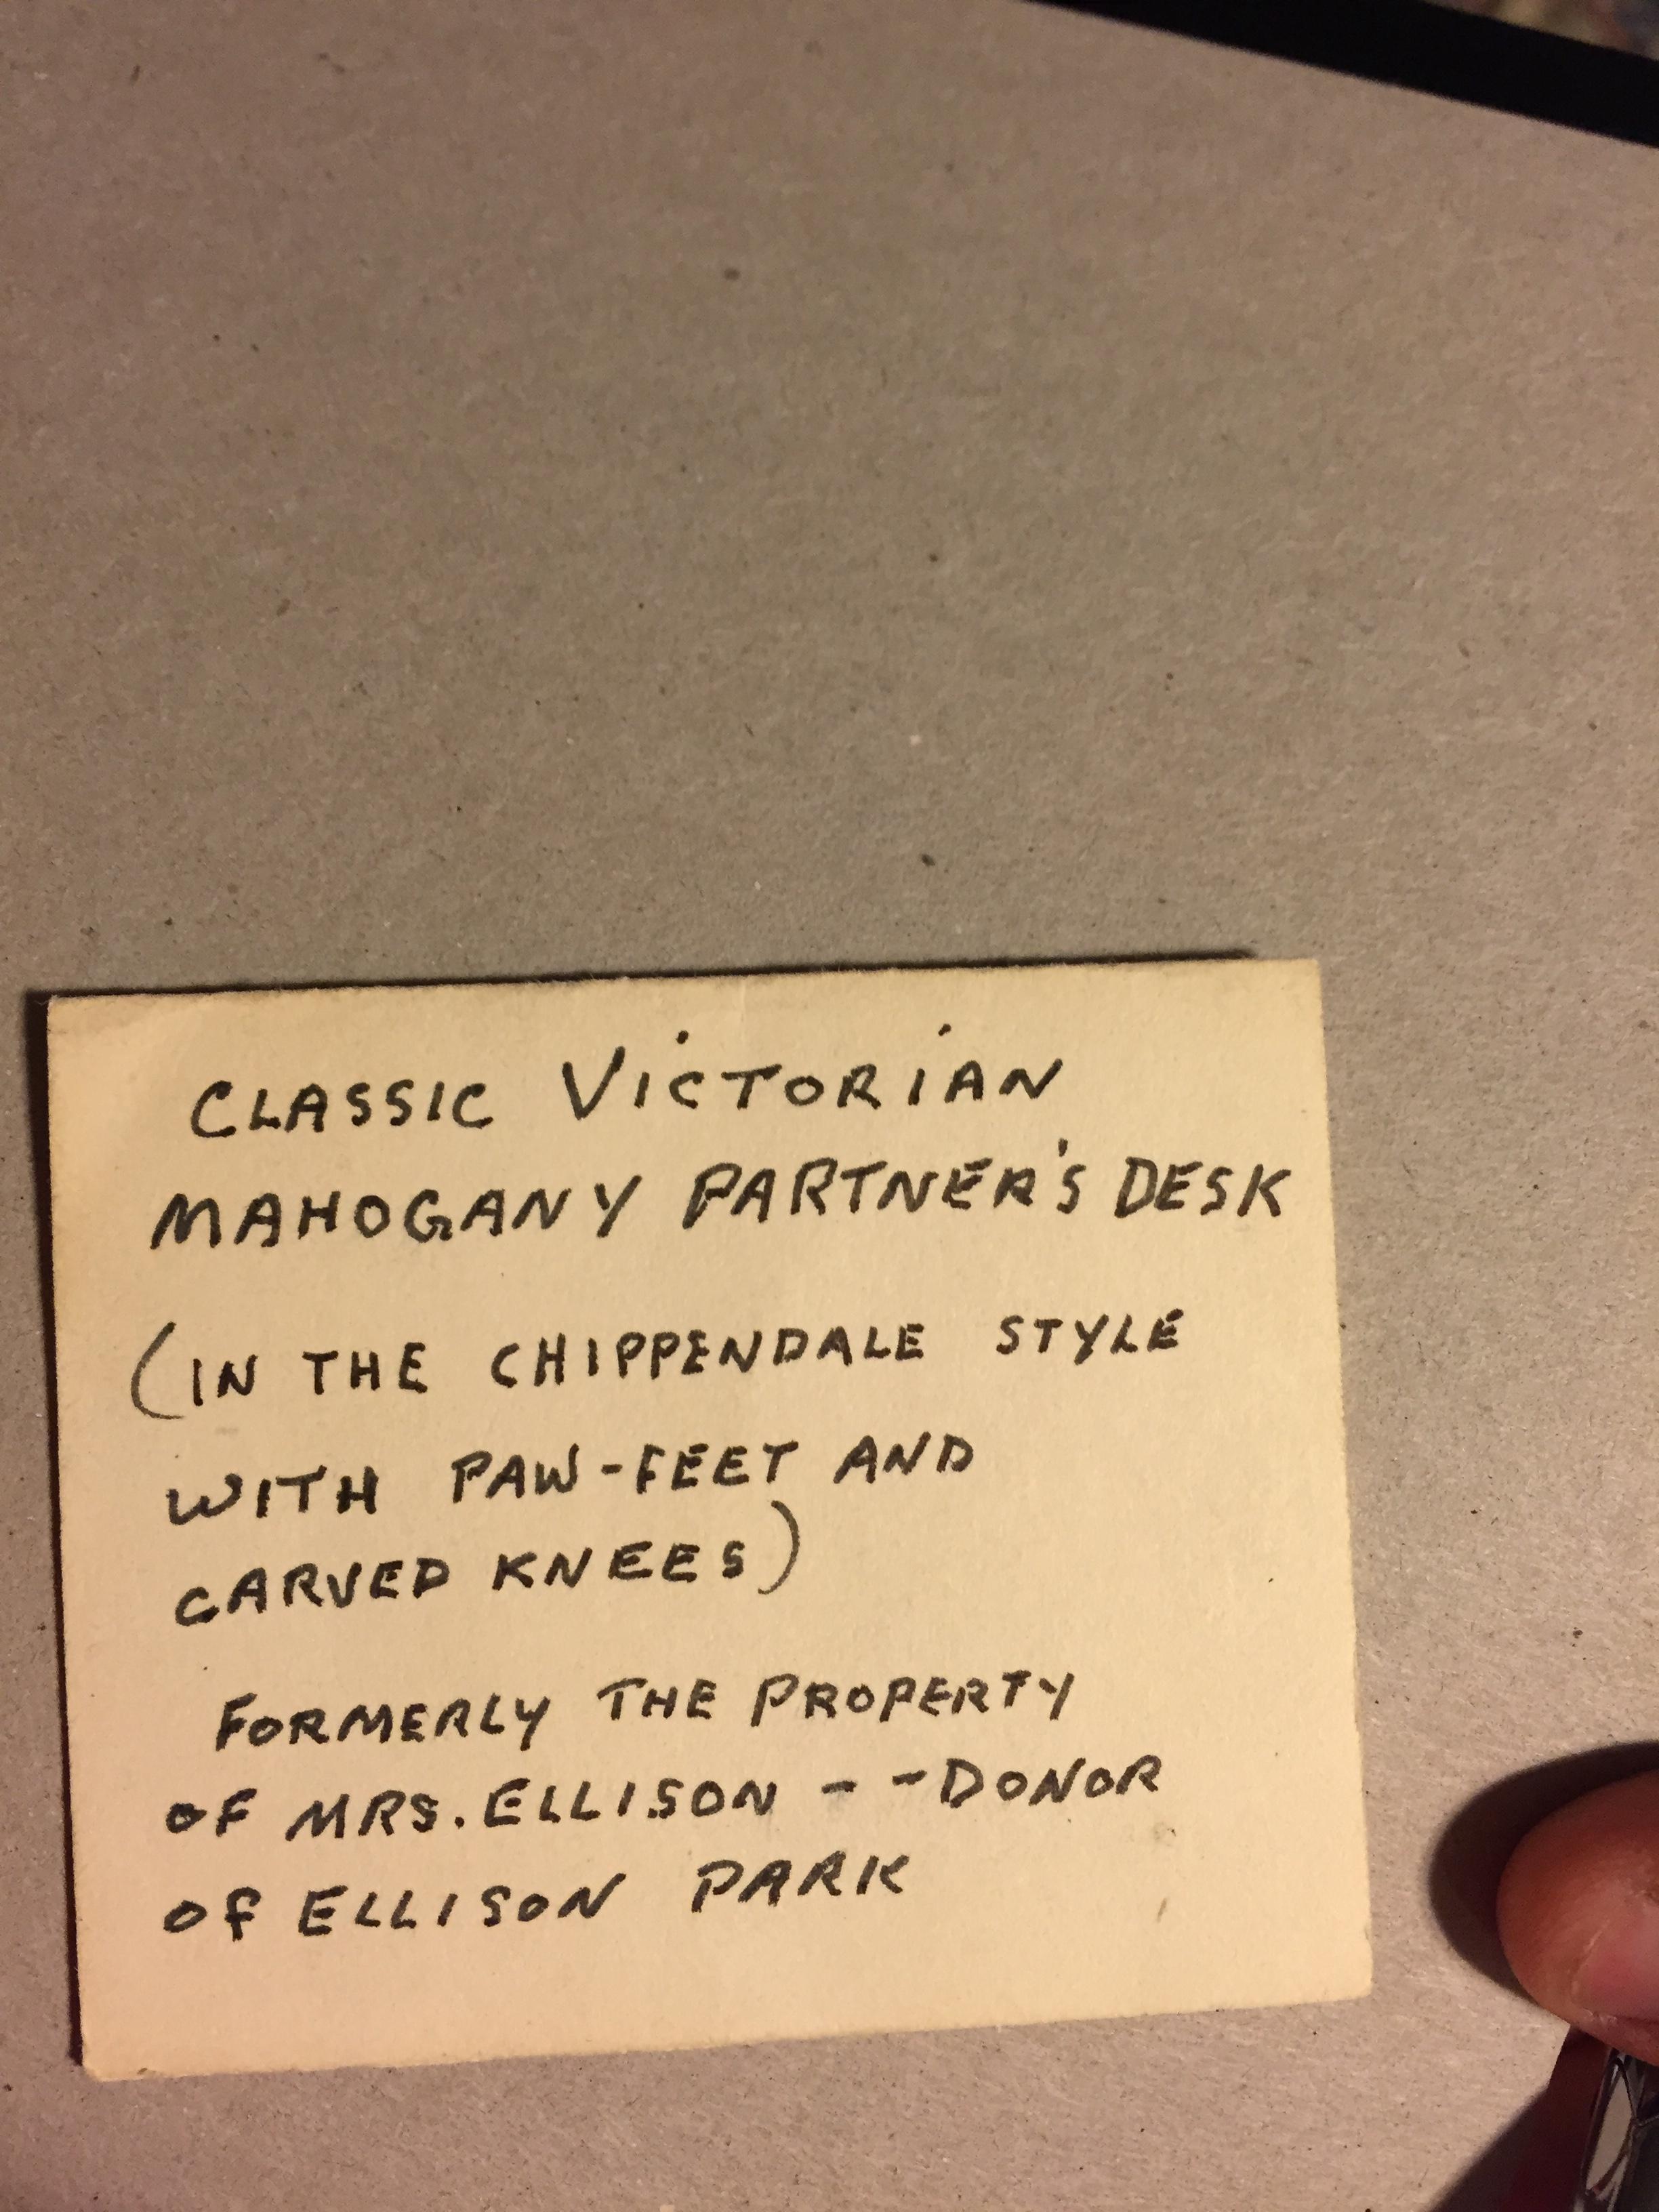 CLASSIC VICTORIAN
MAHOGANY PARTNER'S DESK
(IN THE CHIPPENDALE STYLE
WITH PAW-FEET AND
CARVED KNEES)
FORMERLY THE PROPERTY
OF MRS. ELLISON - - DONOR
OF ELLISON PARK